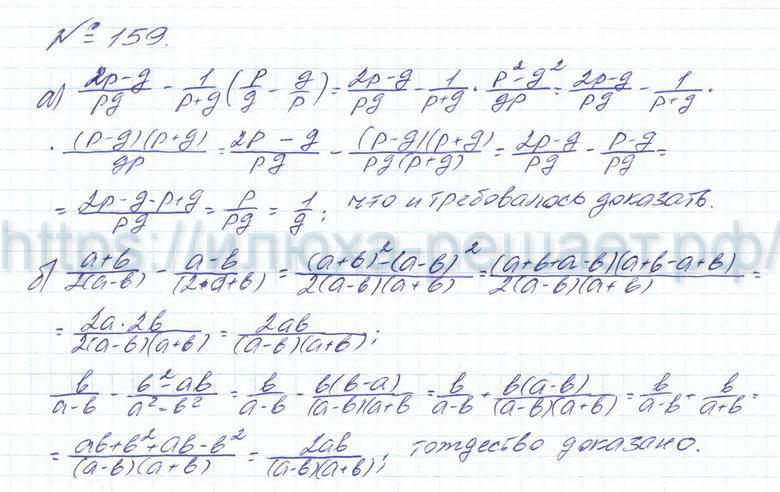 № 159.
а) (2p-g)/(pg) - 1/(p+g) (p/g - g/p) = (2p-g)/(pg) - 1/(p+g) · (p²-g²)/(gp) = (2p-g)/(pg) - 1/(p+g) ·
· ((p-g)(p+g))/(gp) = (2p-g)/(pg) - ((p-g)(p+g))/(pg(p+g)) = (2p-g)/(pg) - (p-g)/(pg) =
= (2p-g-p+g)/(pg) = p/(pg) = 1/g; что и требовалось доказать.
https://илюха-решает.рф/
б) (a+b)/(2(a-b)) - (a-b)/(2(a+b)) = ((a+b)²-(a-b)²)/(2(a-b)(a+b)) = ((a+b+a-b)(a+b-a+b))/(2(a-b)(a+b)) =
= (2a·2b)/(2(a-b)(a+b)) = (2ab)/((a-b)(a+b));
b/(a-b) - (b²-ab)/(a²-b²) = b/(a-b) - (b(b-a))/((a-b)(a+b) = b/(a-b) + (b(a-b))/((a-b)(a+b)) = b/(a-b) + b/(a+b) =
= (ab+b²+ab-b²)/((a-b)(a+b)) = (2ab)/((a-b)(a+b)); тождество доказано.